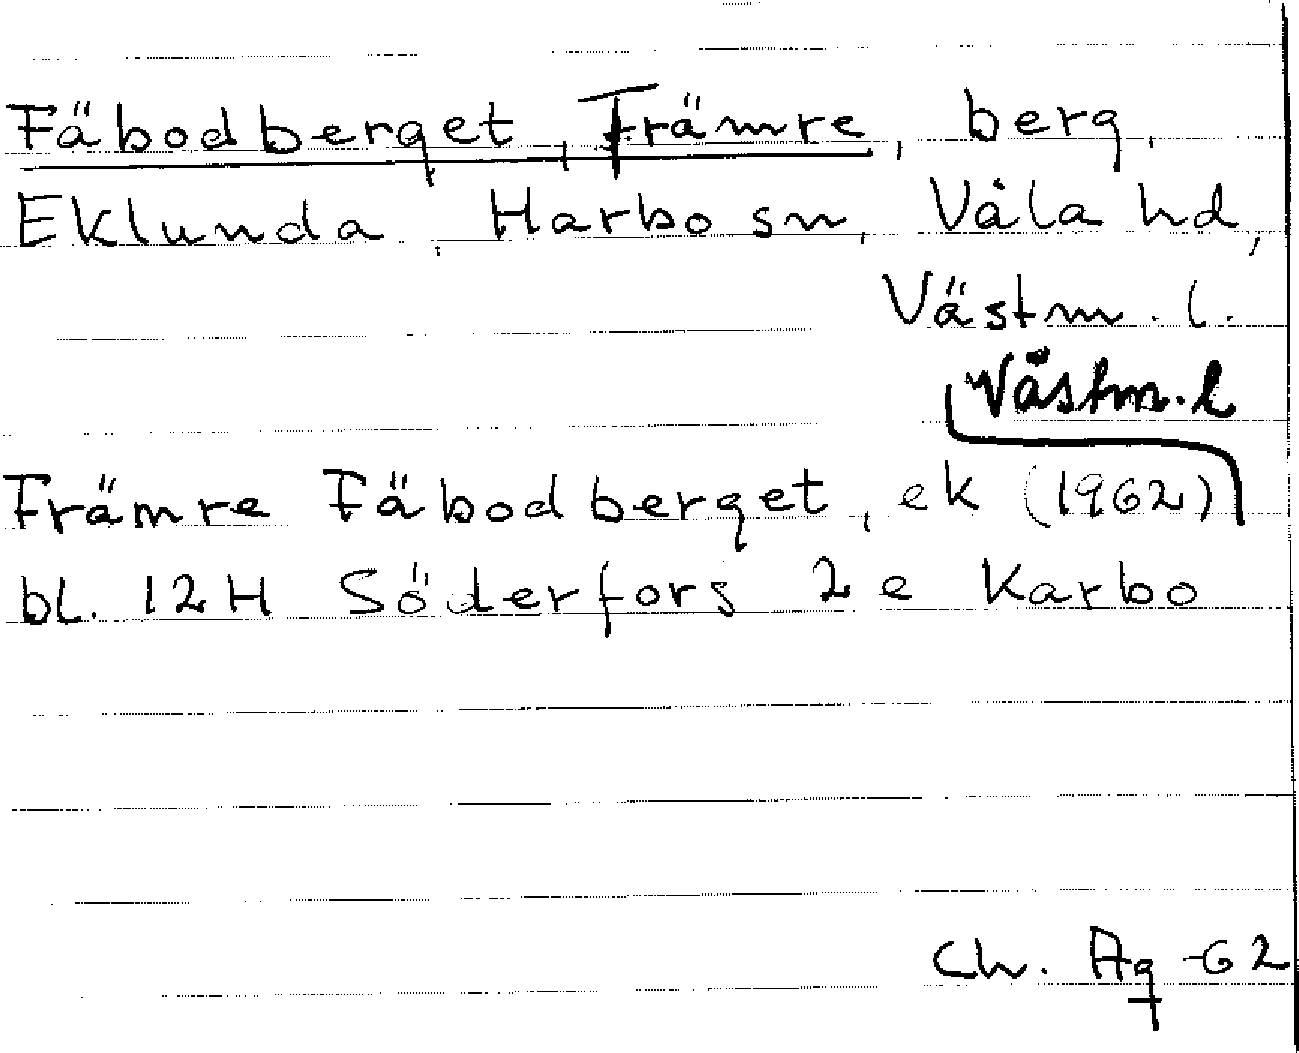 Fäbodberget, Främre, berg,
Eklunda, Harbo sn, Våla hd,
Västm. l.
Västm. l
Främre Fäbodberget, ek (1962)
bl. 12H Söderfors 2e Karbo
Ch. Ag -62